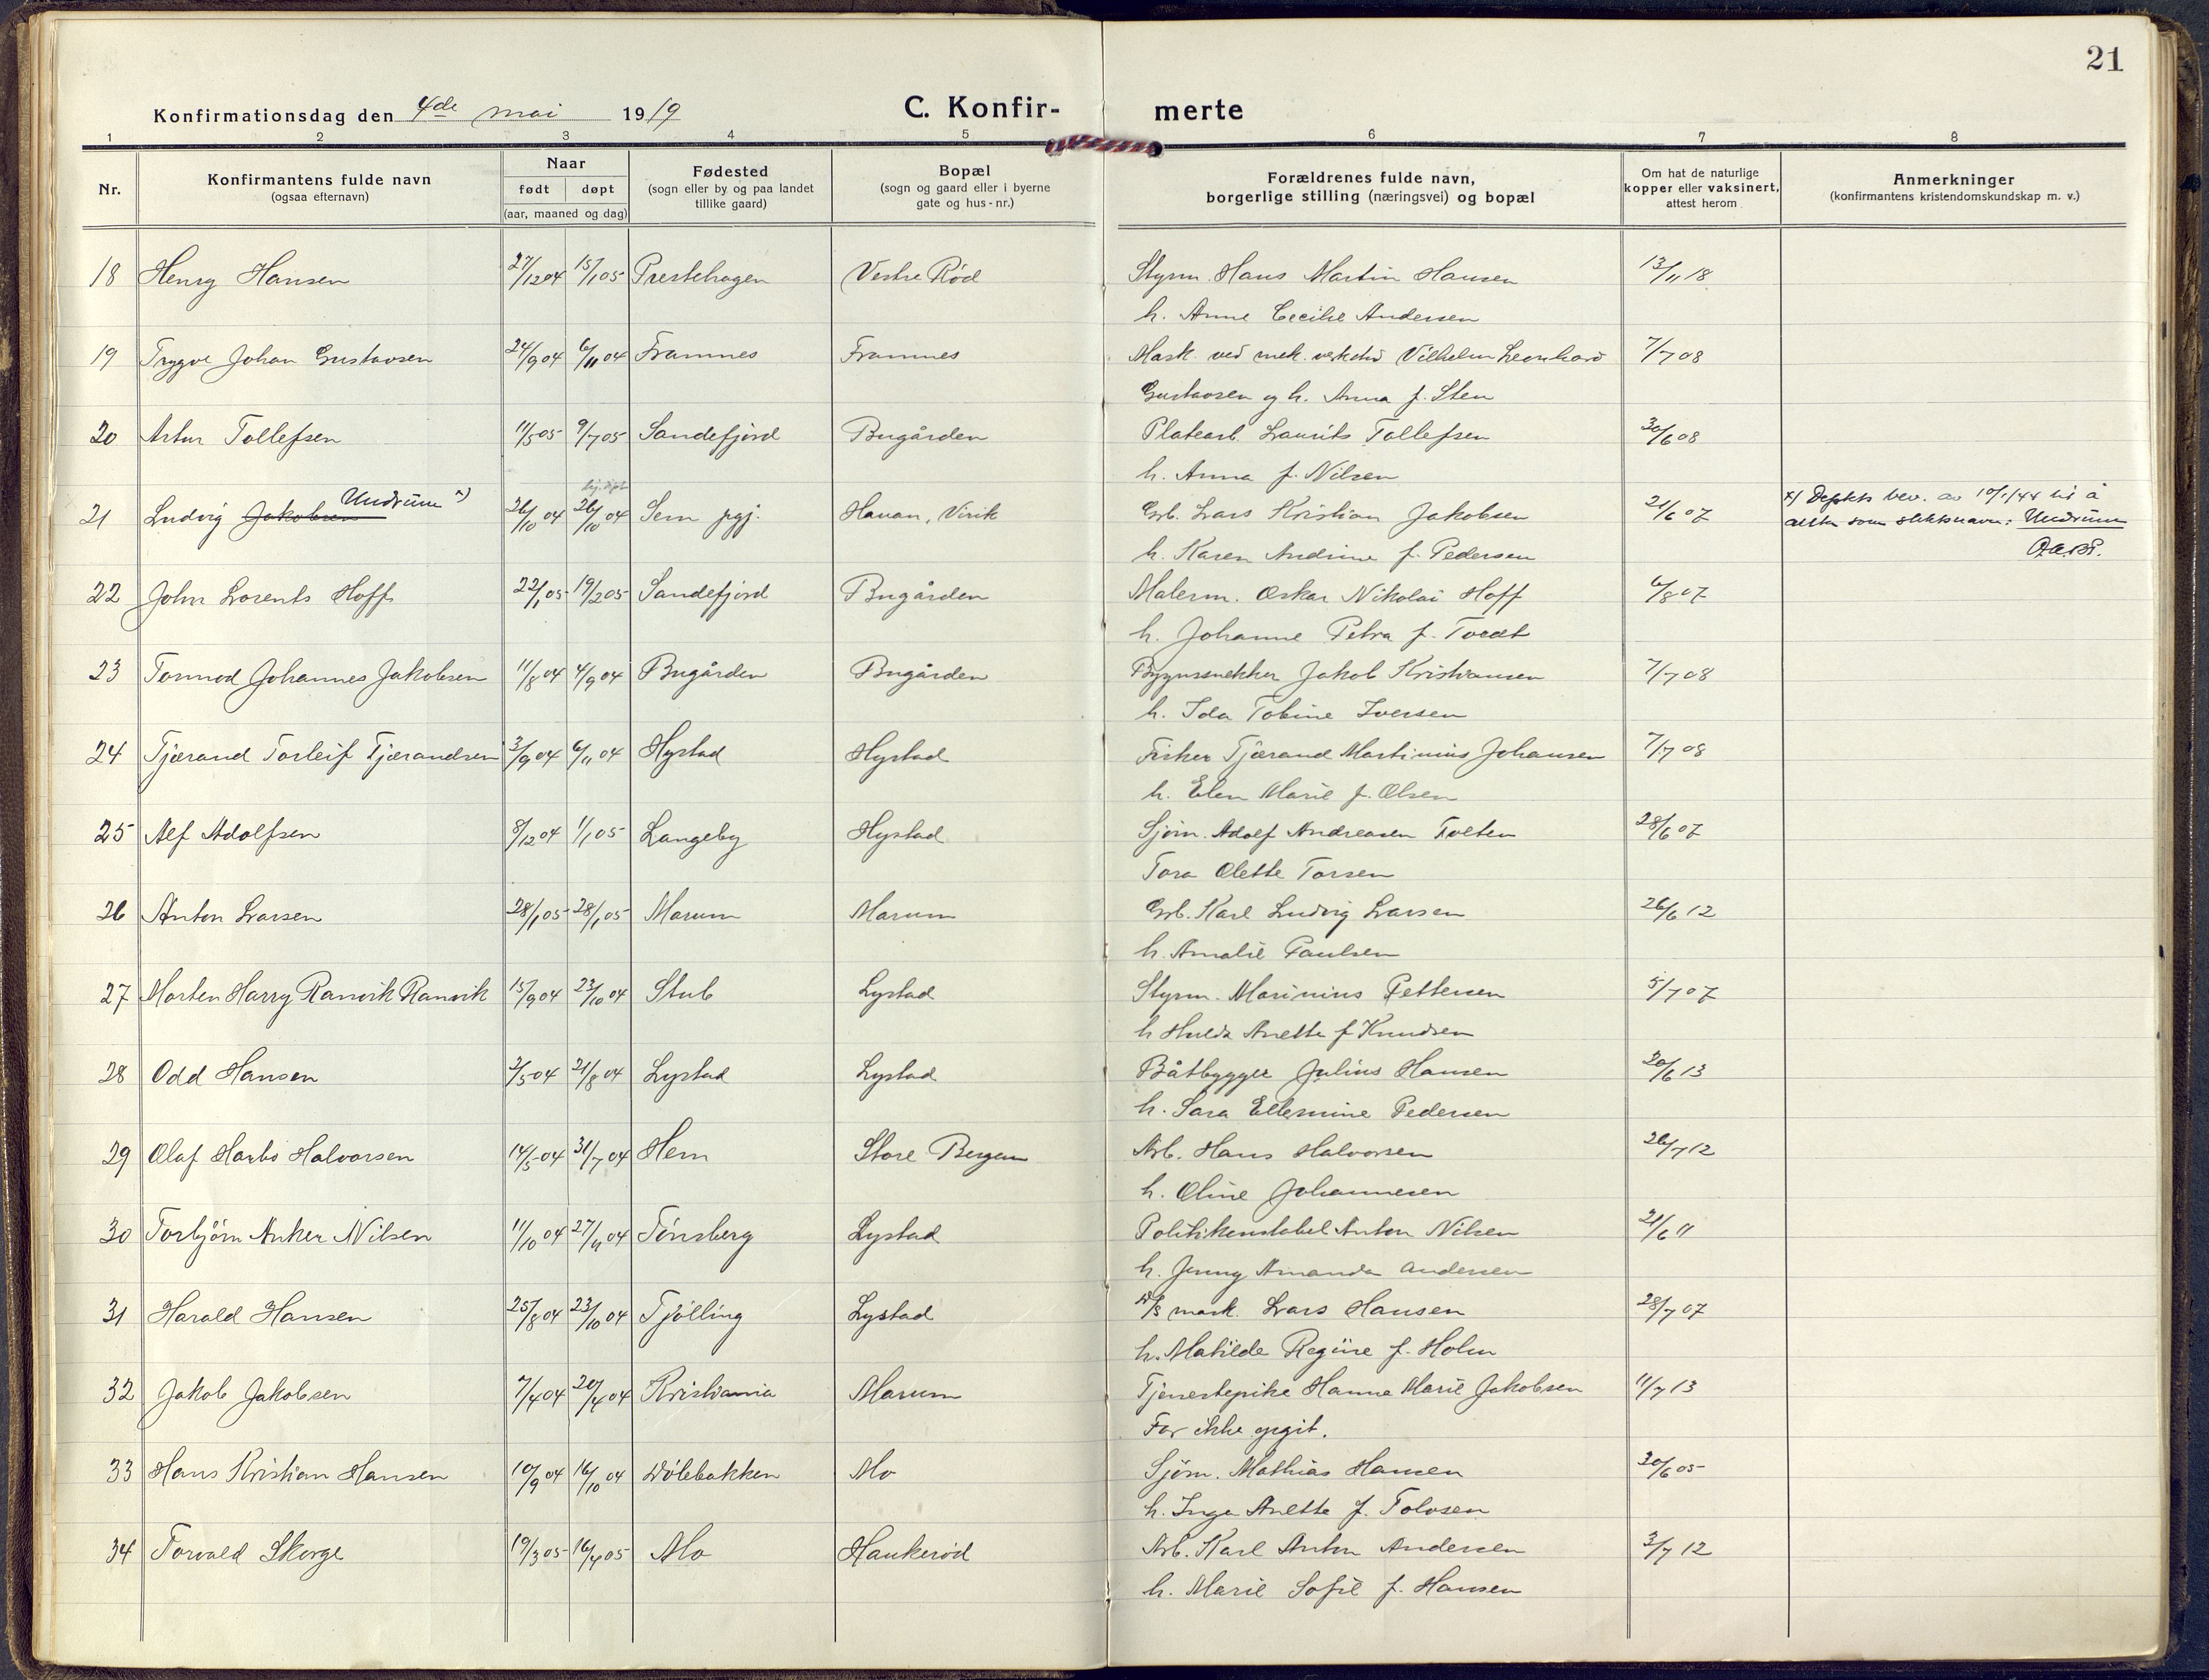 21
Konfirmationsdag den 4de mai 1919
C. Konfir-
merte
1 2 3 4 5 6 7 8
Nr.
Konfirmantens fulde navn
(ogsaa efternavn)
Naar
født døpt
(aar, maaned og dag)
Fødested
(sogn eller by og paa landet
tillike gaard)
Bopæl
(sogn og gaard eller i byerne
gate og hus-nr.)
Forældrenes fulde navn,
borgerlige stilling (næringsvei) og bopæl
Om hat de naturlige
kopper eller vaksinert,
attest herom
Anmerkninger
(konfirmantens kristendomskundskap m. v.)
18 Henry Hansen 27/12 04 15/1 05 Prestehagen Vestre Rød Styrm. Hans Martin Hansen 13/11 18
h. Anne Cecilie Andersen
19 Trygve Johan Gustavsen 24/9 04 6/11 04 Framnes Framnes Mask. ved mek. verksted Vilhelm Leonhard 7/7 08
Gustavsen og h. Anna f. Sten
20 Artur Tollefsen 11/5 05 9/7 05 Sandefjord Bugården Platearb. Laurits Tollefsen 30/6 08
h. Anna f. Nilsen
21 Ludvig Jakobsen Undrum x) 26/10 04 hj. døpt 26/10 04 Sem pgj. Havan, Virik Grb. Lars Kristian Jakobsen 21/6 07 x) Depkts bev. av 10/1/44 til å
h. Karen Andrine f. Pedersen anta som slektsnavn: Undrum
22 John Lorents Hoff 22/1 05 19/2 05 Sandefjord Bugården Malerm. Oskar Nikolai Hoff 6/8 07
h. Johanne Petra f. Tvedt
23 Tormod Johannes Jakobsen 11/8 04 4/9 04 Bugården Bugården Bygnssnekker Jakob Kristiansen 7/7 08
h. Ida Tobine Iversen
24 Tjærand Torleif Tjærandsen 3/9 04 6/11 04 Hystad Hystad Fisker Tjærand Martinius Johansen 7/7 08
h. Elen Marie f. Olsen
25 Alf Adolfsen 8/12 04 1/1 05 Langeby Hystad Sjøm. Adolf Andreasen Tveten 28/6 07
Tora Olette Torsen
26 Anton Larsen 28/1 05 28/1 05 Marum Marum Grb. Karl Ludvig Larsen 26/6 12
h. Amalie Paulsen
27 Morten Harry Ranvik Ranvik 15/9 04 23/10 04 Stub Lystad Styrm. Marinius Pettersen 5/7 07
h Hulda Anette f Knudsen
28 Odd Hansen 2/5 04 21/8 04 Lystad Lystad Båtbygger Julius Hansen 20/6 13
h. Sara Ellermine Pedersen
29 Olaf Harbo Halvorsen 14/5 04 31/7 04 Hem Store Bergan Arb. Hans Halvorsen 26/7 12
h. Oline Johannesen
30 Torbjørn Anker Nilsen 11/10 04 27/11 04 Tønsberg Lystad Politikonstabel Anton Nilsen 21/6 11
h. Jenny Amanda Andersen
31 Harald Hansen 25/8 04 23/10 04 Tjølling Lystad mask. Lars Hansen 28/7 07
h. Matilde Regine f. Holm
32 Jakob Jakobsen 7/4 04 20/4 04 Kristiania Marum Tjenestepike Hanna Marie Jakobsen 11/7 13
Far ikke opgit.
33 Hans Kristian Hansen 10/9 04 16/10 04 Dølebakken Mo Sjøm. Mathias Hansen 30/6 05
h. Inga Anette f. Tolvsen
34 Torvald Skorge 19/3 05 16/4 05 Mo Haukerød Arb. Karl Anton Andersen 3/7 12
h. Marie Sofie f. Hansen